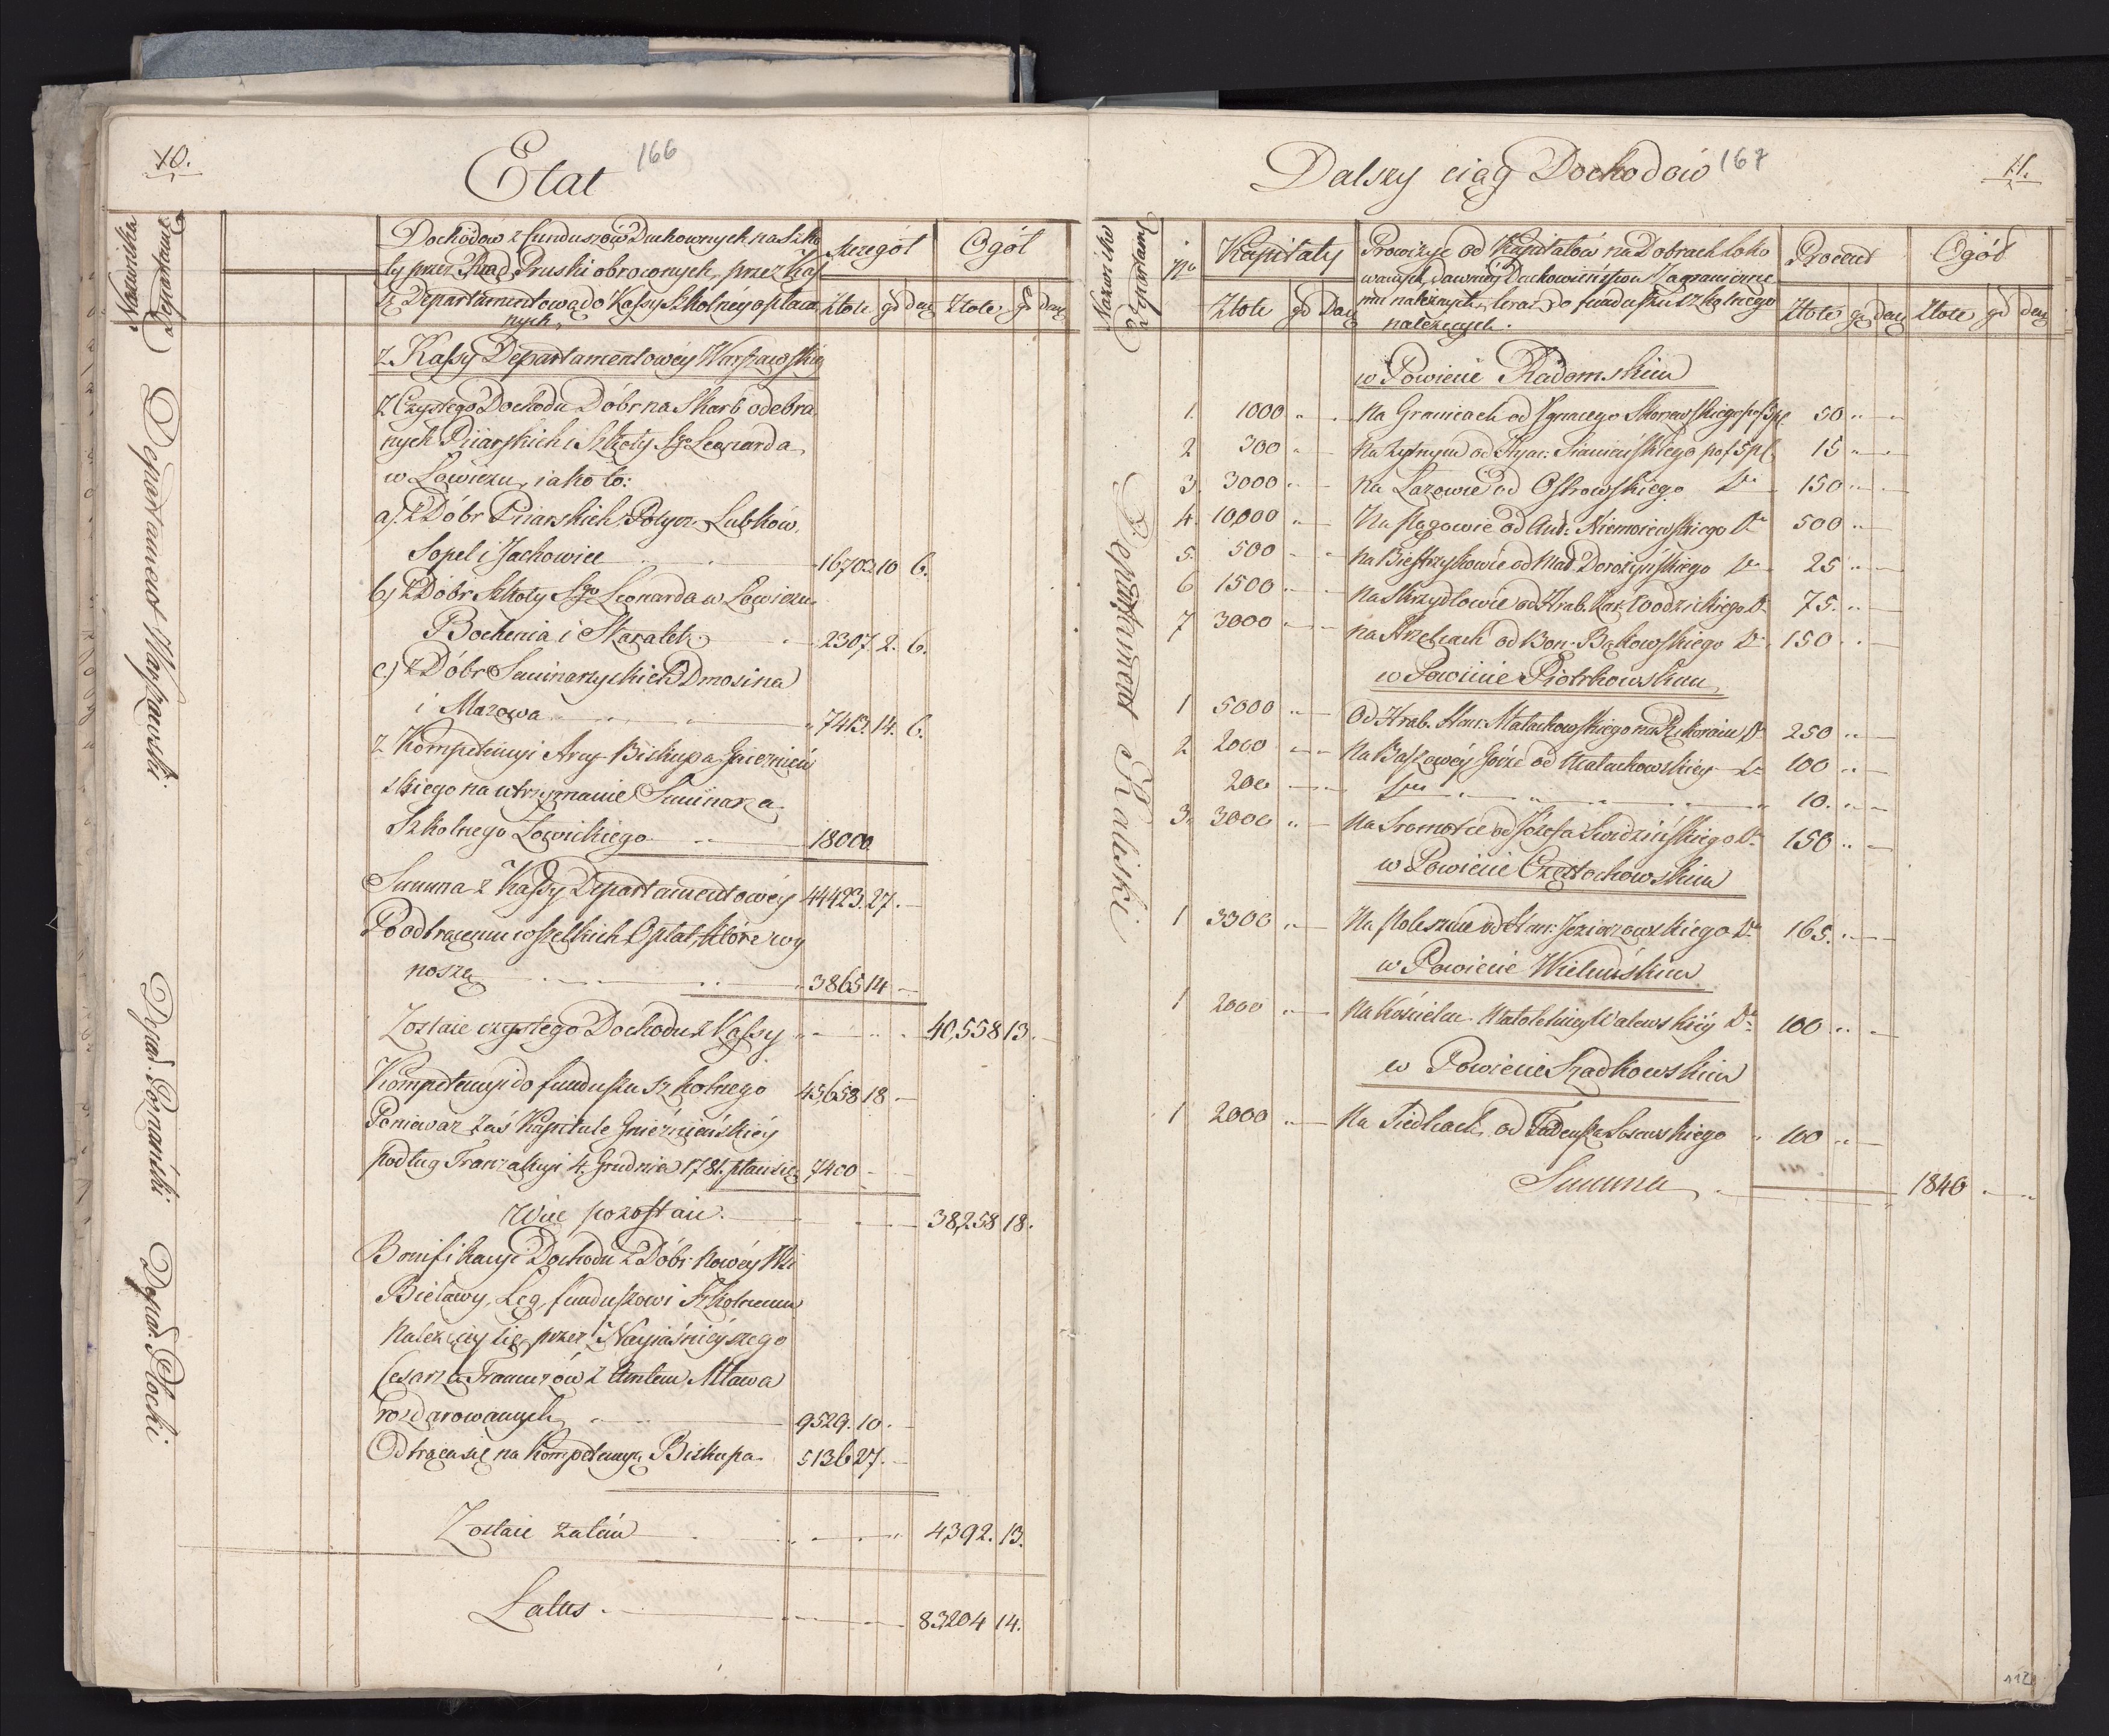 10.
Etat
166
Nazwiska
Departamentów
Dochodów z funduszów Duchownych na Szko
ły przez Rząd Pruski obroconych, przez Kaſ
sę Departamentową do Kaſsy Szkolnéy opłaca
nych,
Szczegół
Ogół
Złote gr den
Złote gr den
Departament Warszawski
z Kaſsy Departamentowéy Warszawskiéy
z Czystego Dochodu Dóbr na Skarb odebra
nych Piiarskich i Szkoły Sgo Leonarda
w Łowiczu, iako to:
a). z Dóbr Piiarskich
Sopel i Jachowice 16702 10 6.
b) z Dóbr Szkoły Sgo Leonarda w Łowiczu
Bochenia i Skaratek 2307. 2. 6.
c.) z Dóbr Seminaryskich Dmosina
i Mazowa 7413. 14. 6.
z Kompetencyi Arcy-Biskupa Gnieznień
skiego na utrzymanie Seminarza
Szkolnego Łowickiego 18000
Summa z Kaſsy Departamentowéy 44423. 27. —
Po odtrąceniu wszelkich Opłat, które wy
noszą 3865 14 —
Zostaie czystego Dochodu z Kaſsy 40,558 13. —
Depar. Poznański
Kompetencyi do funduszu szkolnego 45,658 18 —
Ponieważ zaś Kapitule Gnieźnieńskiéy
podług Tranzakcyi 4. Grudnia 1781. płaci się 7400 — —
Więc pozostaie. 38,258 18.
Depar. Płocki
Bonifikacyi Dochodu z Dóbr Nowéy Wsi
Bielawy, Łęg, funduszowi Szkolnemu
należący się, przez Nayiaśnieyszego
Cesarza Francuzów z Amtem Mława
rozdarowanych, 9529. 10. —
Odtrąca się na kompetencyą Biskupa 5136 27. —
Zostaie zatém 4,392. 13.
Latus. 83204 14.
Dalszy ciąg Dochodów
167
11.
Nazwisko
Departament
Nro
Kapitały
Prowizye od Kapitałów na Dobrach loko
wanych, dawniéy Duchowieństwu Zagranicznemu
należnych, teraz do funduszu szkolnego
należących.
Procent
Ogół
Złote gr Den
Złote gr den
Złote gr den
Departament Kaliski
w Powiecie Radomskim
1. 1000 " — Na Granicach od Ignacego Skorzewskiego po 5 pC 50 " —
2 300 " — Na Zytnym od Hyac: Siemieńskiego po 5 pC 15 " —
3. 3000 " — Na Łazowie od Ostrowskiego Do 150 " —
4. 10,000 " — Na od And: Niemoiewskiego Do 500 " —
5. 500 " — Na Biestrzykowie od Mad. Dorożyńskiego Do 25 " —
6 1500 " — Na Skrzydlowie od Hrab. Do 75. " —
7 3000 " — na Strzelcach od Bon: Bąkowskiego Do 150 " —
w Powiecie Piotrkowskim
1 5000 " — Od Hrab. Małachowskiego na Do 250 " —
2 2000 " — Na Górze od Małachowskiey Do 100 " —
200 — 10. " —
3. 3000 " — Na Sromotce od Józefa Swidzińskiego Do 150 " —
w Powiecie Częstochowskim
1 3300 " — Na od Do 165. " —
w Powiecie Wieluńskim
1 2000 " — Na Kościelcu Małoletniey Walewskiéy Do 100 " —
w Powiecie Szadkowskim
1 2000 " — Na Siedlcach, od Tadeusza 100 " —
Summa 1840 — "
112